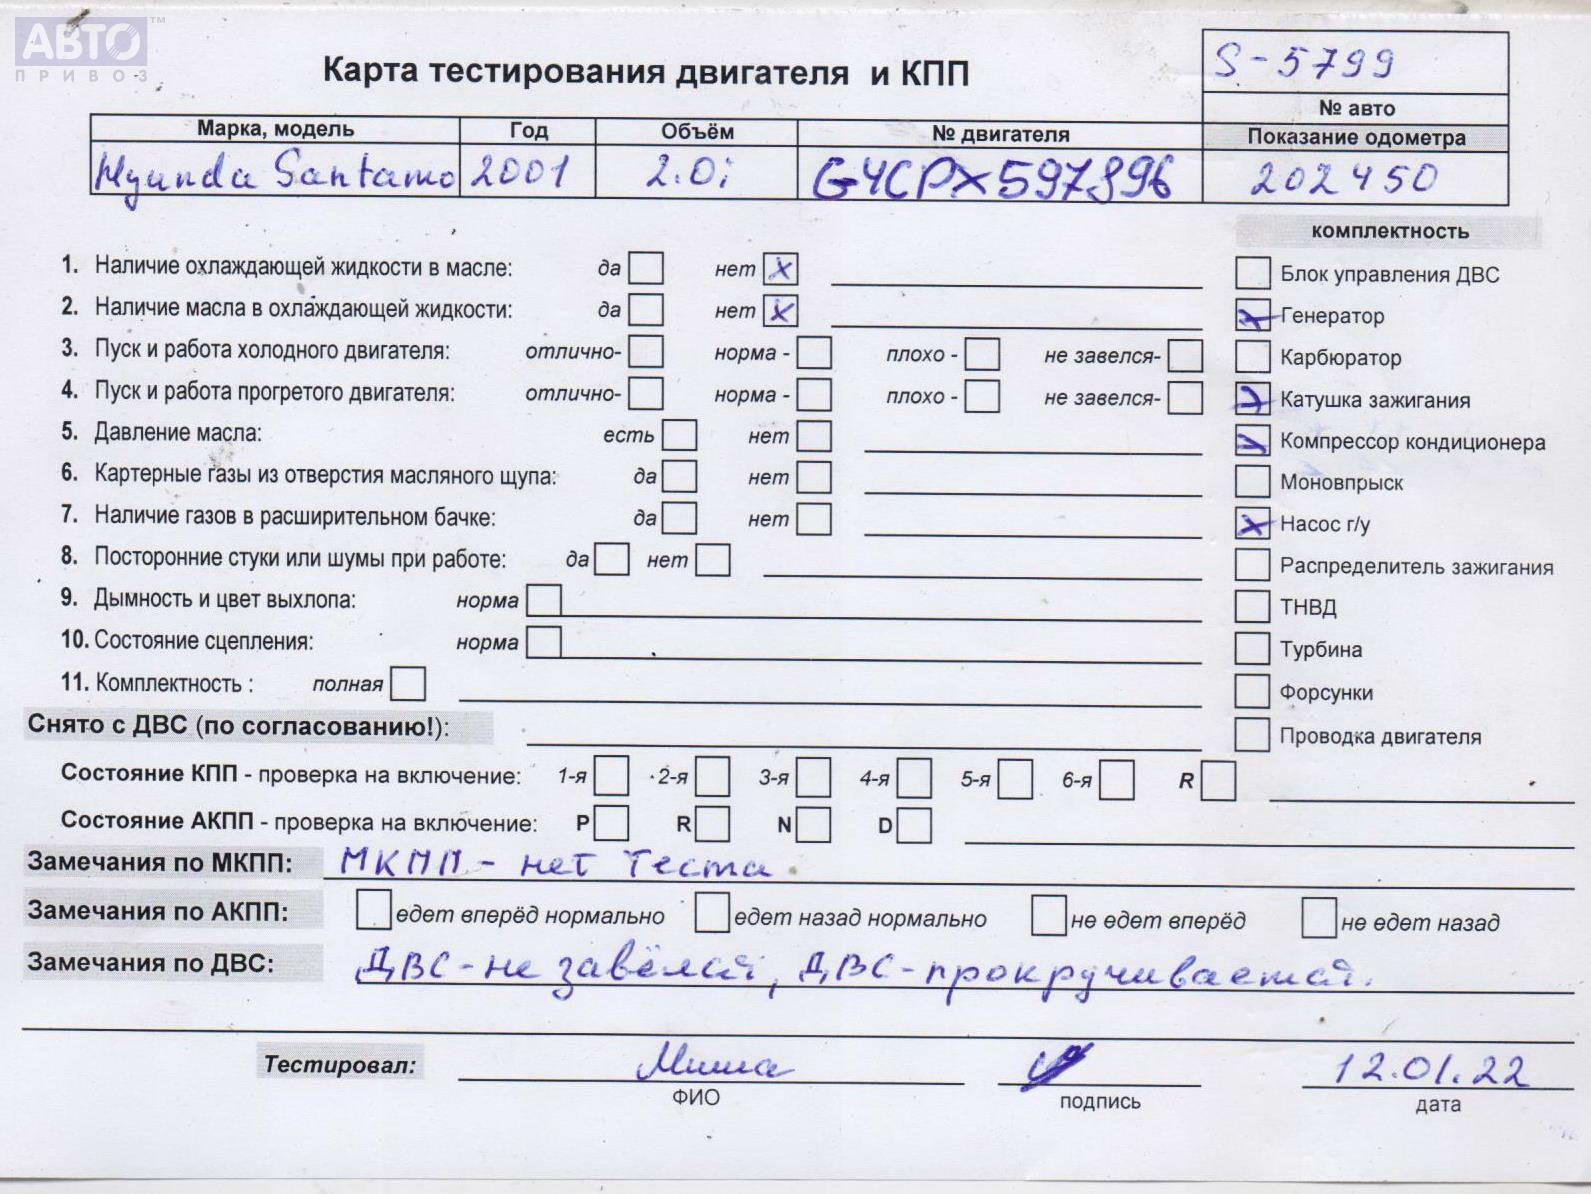 АВТО™
ПРИВОЗ
Карта тестирования двигателя и КПП
S-5799
№ авто
Марка, модель Год Объём № двигателя Показание одометра
Hyunda Santamo 2001 2.0i G4CPX597996 202450
комплектность
1. Наличие охлаждающей жидкости в масле: да нет x
Блок управления ДВС
2. Наличие масла в охлаждающей жидкости: да нет x
x Генератор
3. Пуск и работа холодного двигателя: отлично- норма - плохо - не завелся-
Карбюратор
4. Пуск и работа прогретого двигателя: отлично- норма - плохо - не завелся-
Катушка зажигания
5. Давление масла: есть нет
Компрессор кондиционера
6. Картерные газы из отверстия масляного щупа: да нет
Моновпрыск
7. Наличие газов в расширительном бачке: да нет
x Насос г/у
8. Посторонние стуки или шумы при работе: да нет
Распределитель зажигания
9. Дымность и цвет выхлопа: норма
ТНВД
10. Состояние сцепления: норма
Турбина
11. Комплектность : полная
Форсунки
Снято с ДВС (по согласованию!):
Проводка двигателя
Состояние КПП - проверка на включение: 1-я 2-я 3-я 4-я 5-я 6-я R
Состояние АКПП - проверка на включение: P R N D
Замечания по МКПП: МКПП - нет теста
Замечания по АКПП: едет вперёд нормально едет назад нормально не едет вперёд не едет назад
Замечания по ДВС: ДВС-не завёлся, ДВС-прокручивается.
Тестировал: Миша 12.01.22
ФИО подпись дата